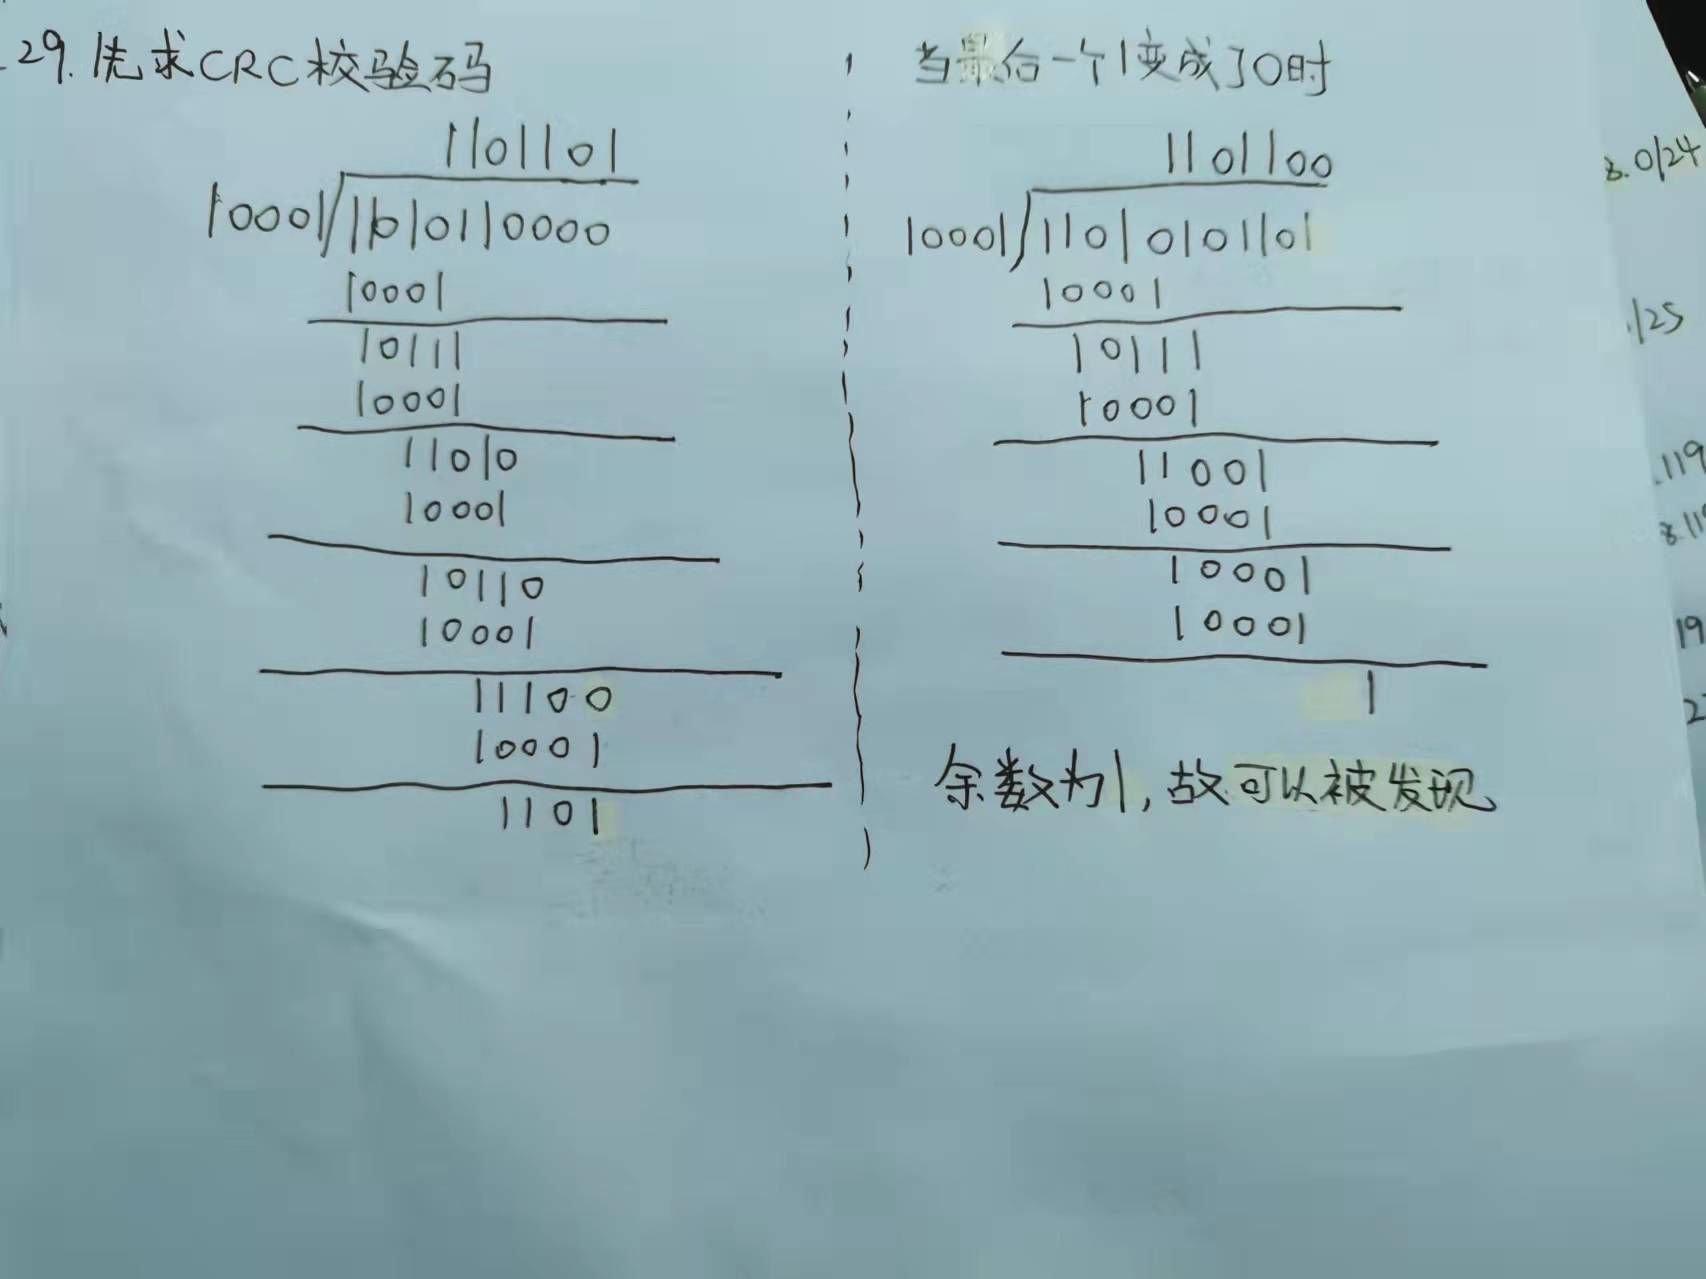 29. 先求CRC校验码
1101101
10001/11010110000
10001
10111
10001
11010
10001
10110
10001
11100
10001
1101
当最后一个1变成了0时
1101100
10001/11010101101
10001
10111
10001
11001
10001
10001
10001
1
余数为1,故可以被发现
8.0/24
/25
.119
8.11
19